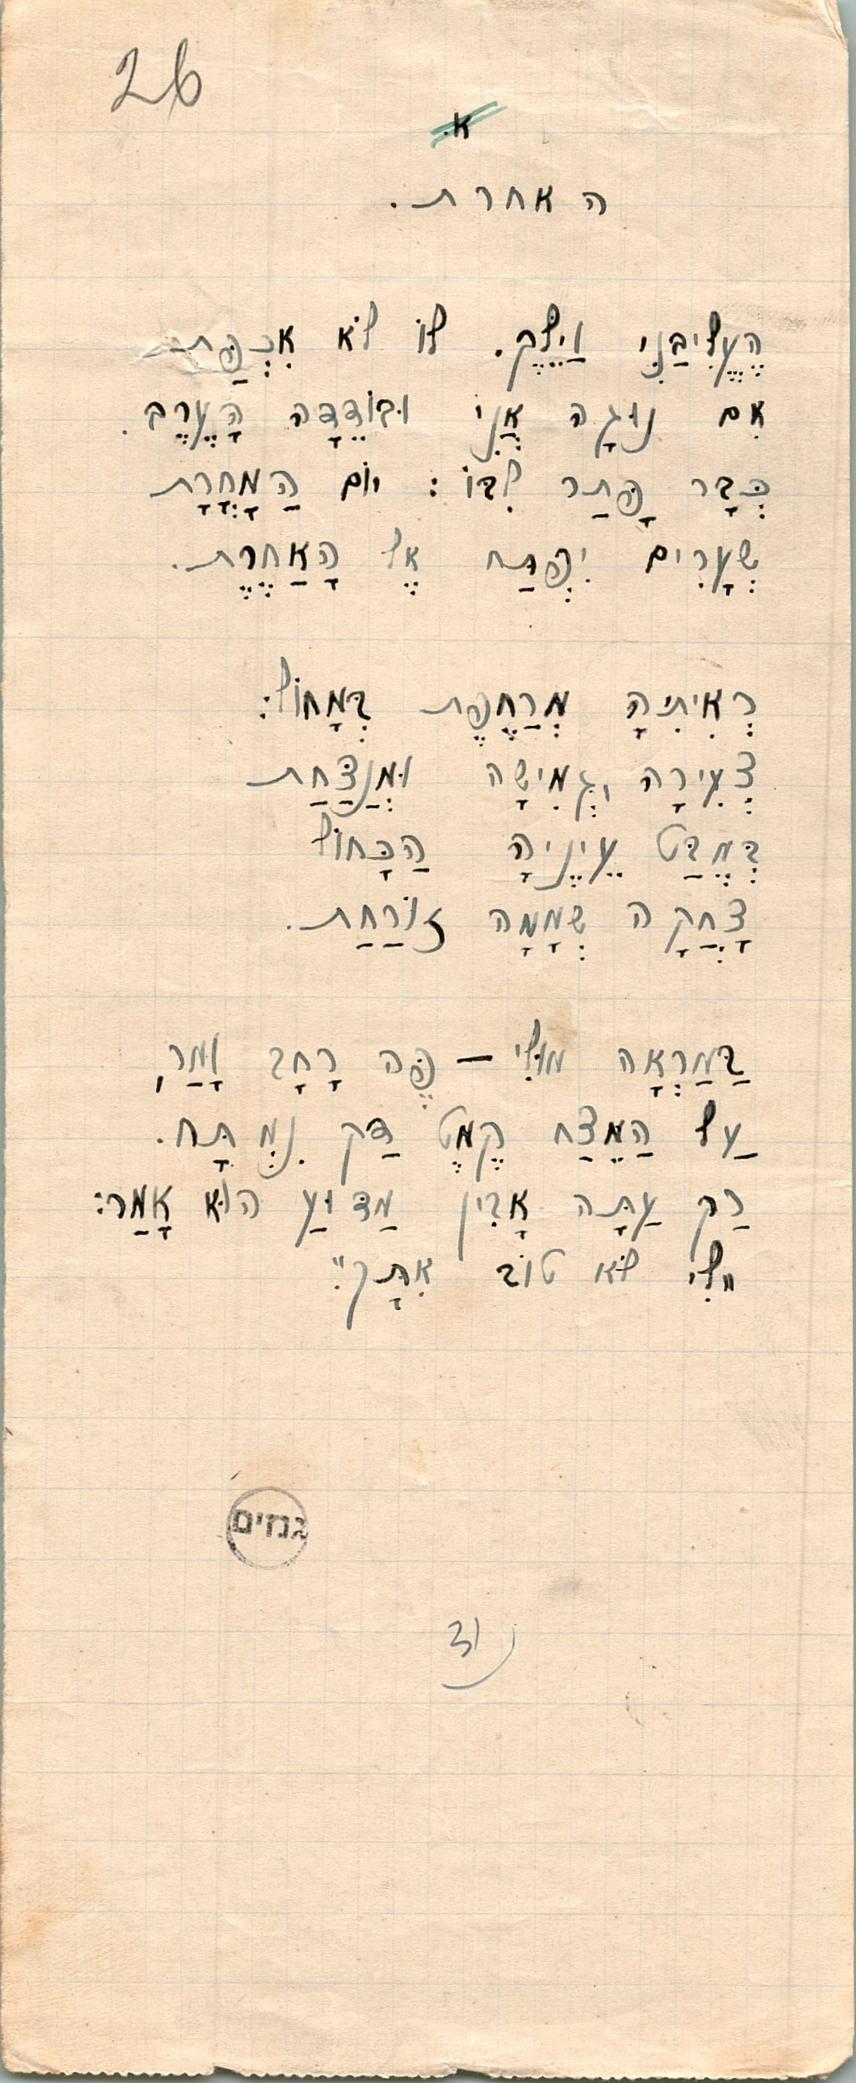 26
א.
האחרת.
הֶעֱלִיבַנִי וַיֵּלֶךְ. לוֹ לֹא אִכְפַּת
אִם נוּגָה אֲנִי וּבוֹדֵדָה הָעֶרֶב.
כְּבָר פָּתַר לִבּוֹ: יוֹם הַמָּחֳרָת
שְׁעָרִים יִפְתַּח אֶל הָאַחֶרֶת.
רְאִיתִיהָ מְרַחֶפֶת בְּמָחוֹל:
צְעִירָה, גְּמִישָׁה וּמְנַצַּחַת
בְּמֶבַּט עֵינֶיהָ הַכָּחוֹל
צָחֲקָה שְׁמָמָה זוֹרַחַת.
בַּמַּרְאָה מוּלִי – פֶּה רָחָב וָמַר,
עַל הַמֵּצַח קֶמֶט דַּק נִמְתָּח.
רַק עַתָּה אָבִין מַדּוּעַ הוּא אָמַר:
"לִי לֹא טוֹב אִתָּךְ".
גנזים